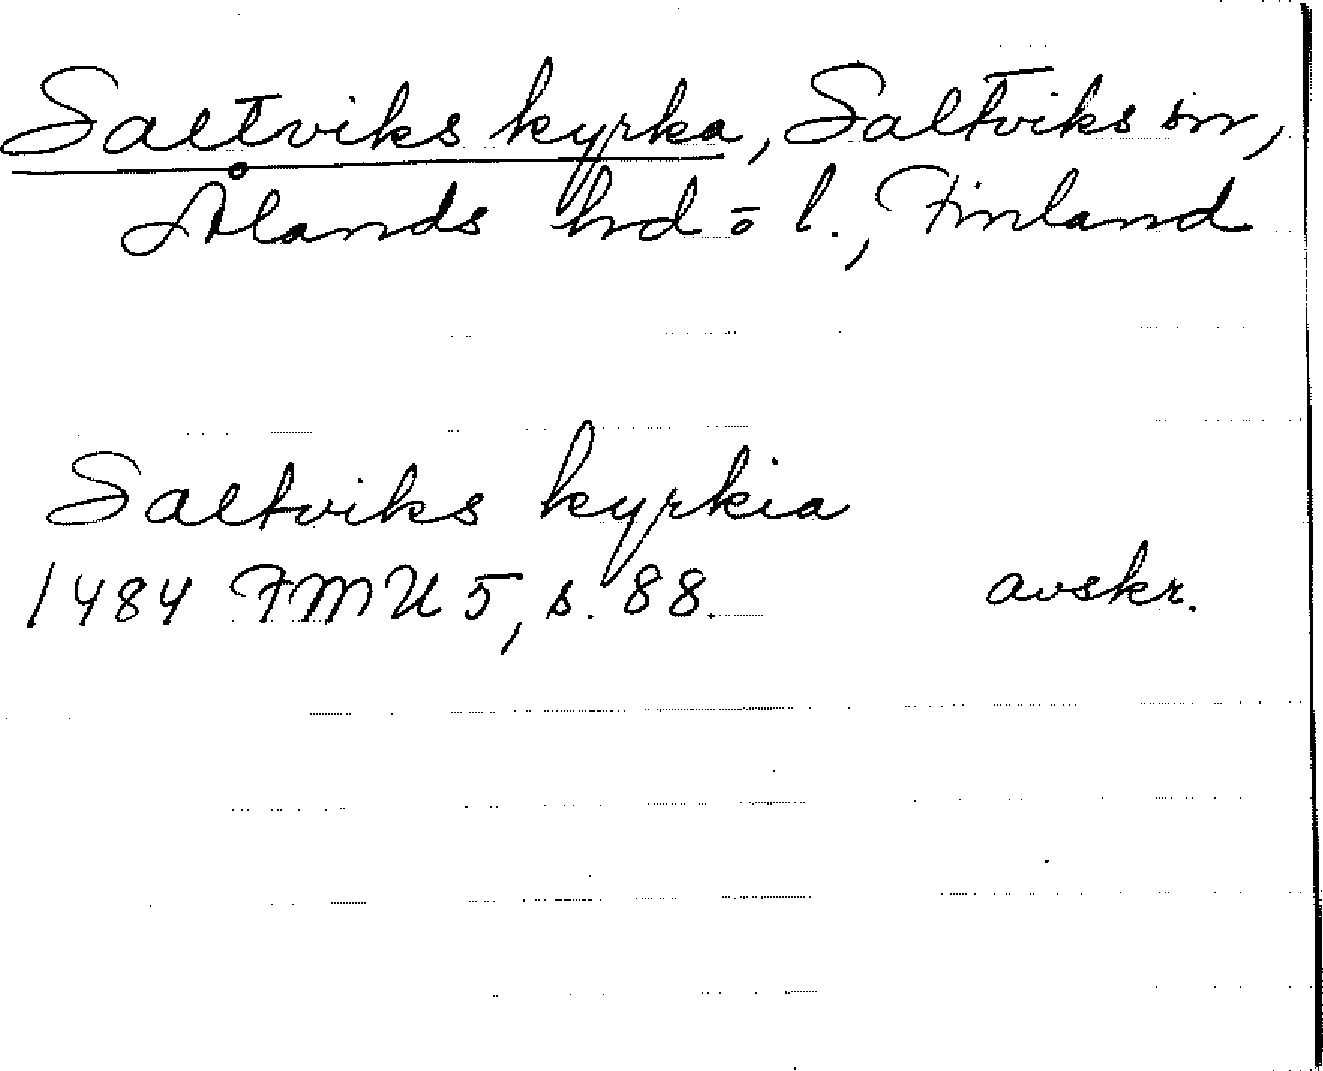 Saltviks kyrka, Saltviks sn,
Ålands hd o l., Finland
Saltviks kyrkia
1484 FMU 5, s. 88. avskr.